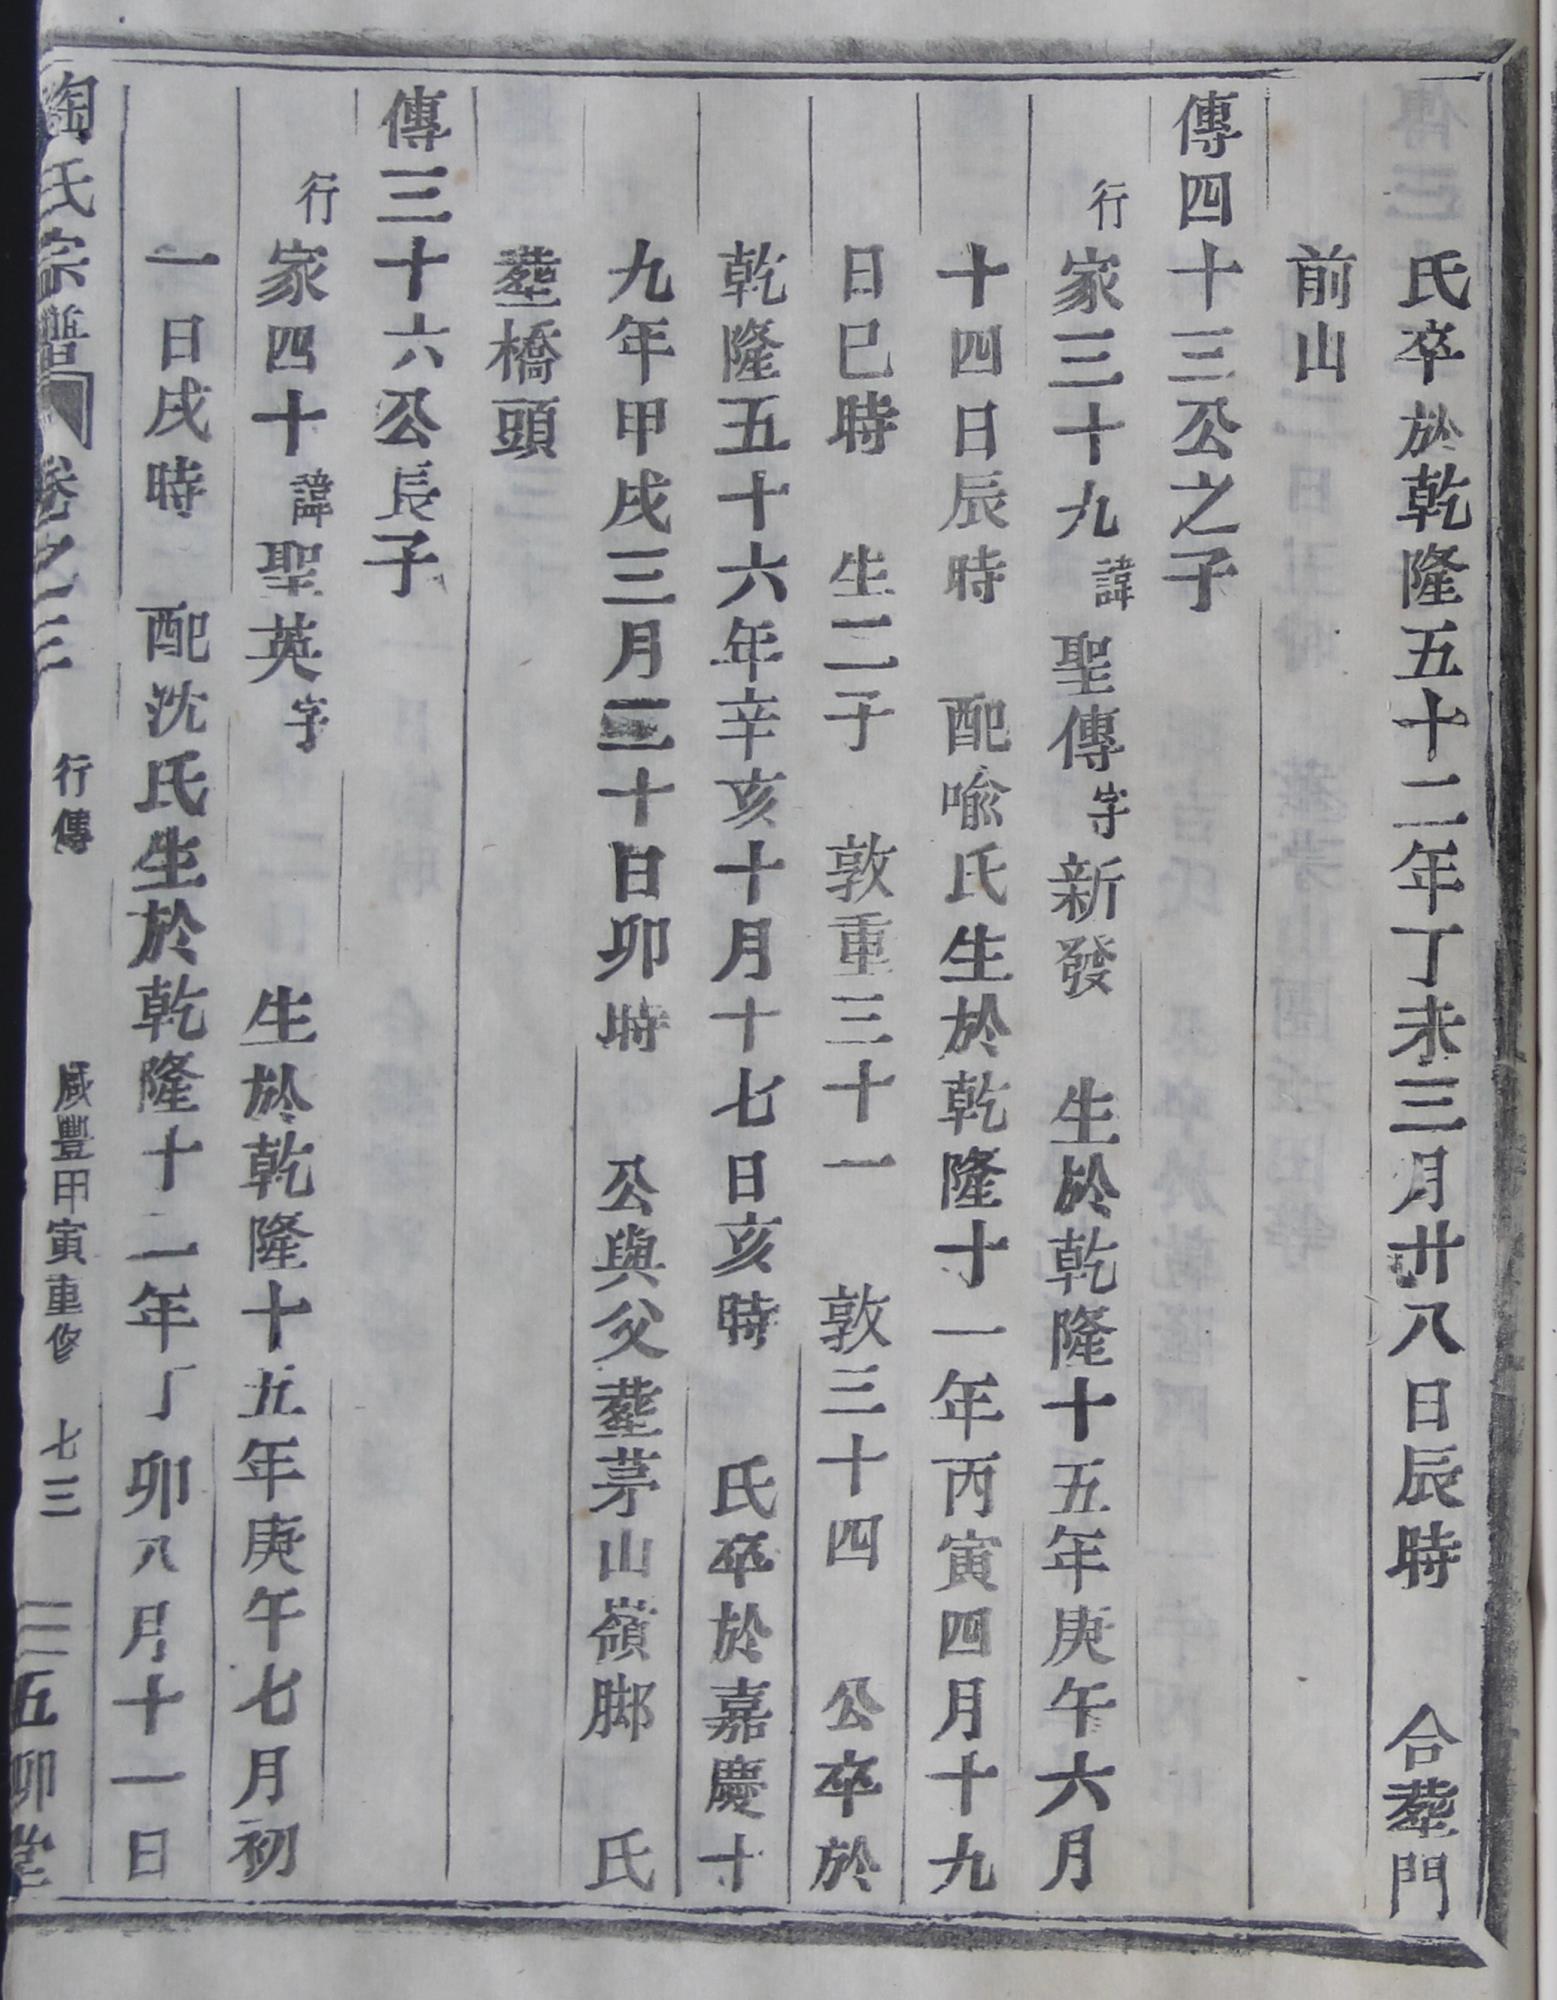 氏卒於乾隆五十二年丁未三月廿八日辰時　合塟門
前山
傳四十三公之子
行家三十九諱聖傳字新發　生於乾隆十五年庚午六月
十四日辰時　配喩氏生於乾隆十一年丙寅四月十九
日巳時　生二子　敦重三十一　敦三十四　公卒於
乾隆五十六年辛亥十月十七日亥時　氏卒於嘉慶十
九年甲戌三月三十日卯時　公與父塟茅山嶺脚　氏
塟橋頭
傳三十六公長子
行家四十諱聖英字　生於乾隆十五年庚午七月初
一日戌時　配沈氏生於乾隆十二年丁卯八月十一日
陶氏宗譜　卷之三　行傳　咸豐甲寅重修　七三　五柳堂